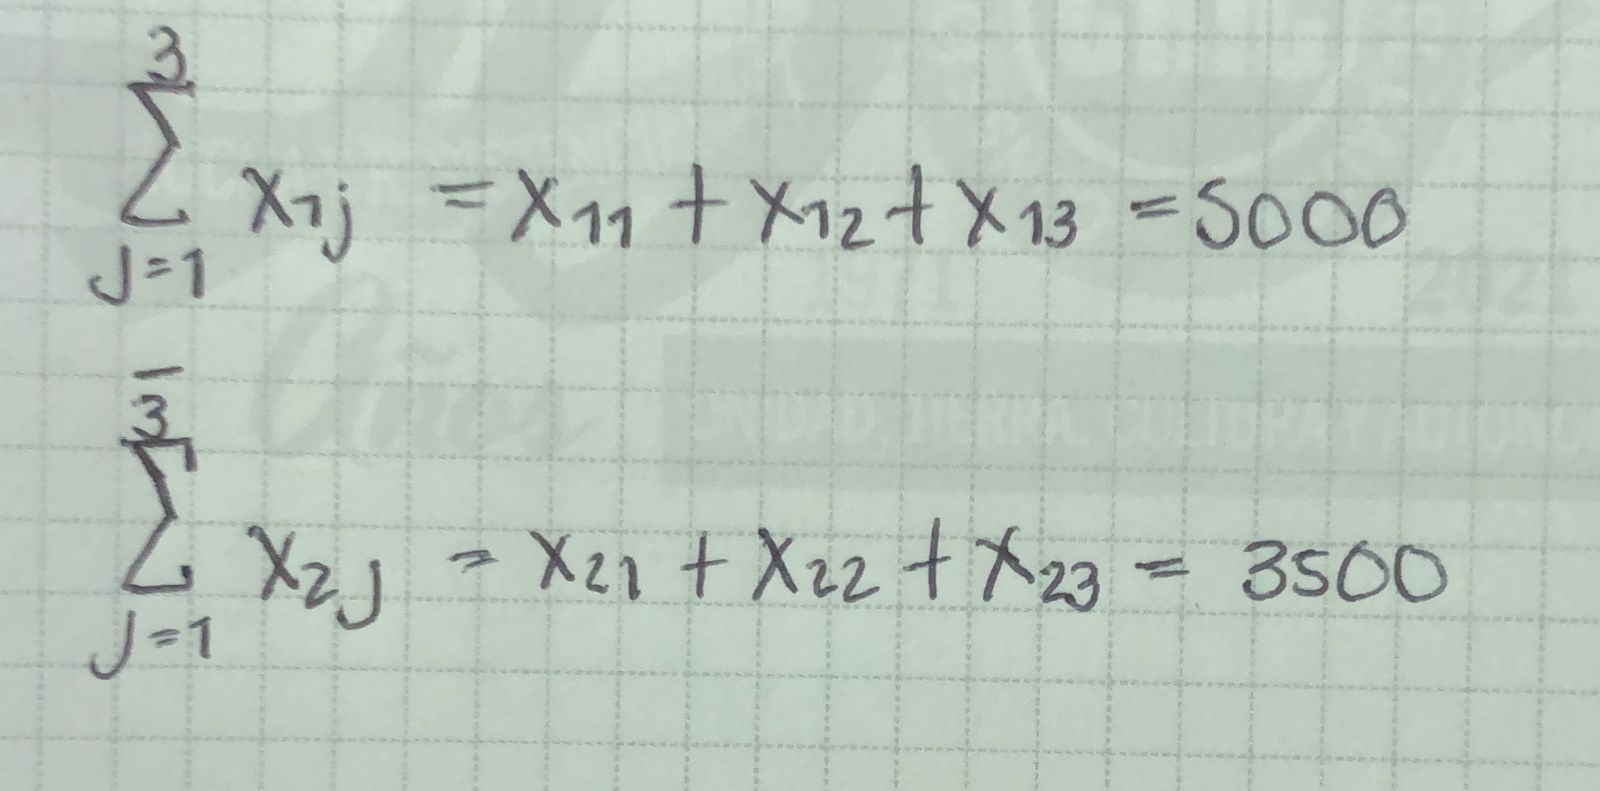 \sum_{j=1}^{3} x_{1j} = x_{11} + x_{12} + x_{13} = 5000
\sum_{j=1}^{3} x_{2j} = x_{21} + x_{22} + x_{23} = 3500
2021
UNIDAD, TIERRA, CULTURA Y AUTONO